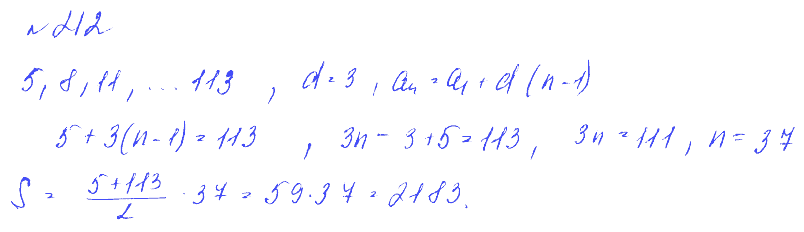 № 212
5, 8, 11, ... 113 , d = 3 , aₙ = a₁ + d (n-1)
5 + 3(n-1) = 113 , 3n - 3 + 5 = 113 , 3n = 111 , n = 37
S = (5+113)/2 · 37 = 59 · 37 = 2183.